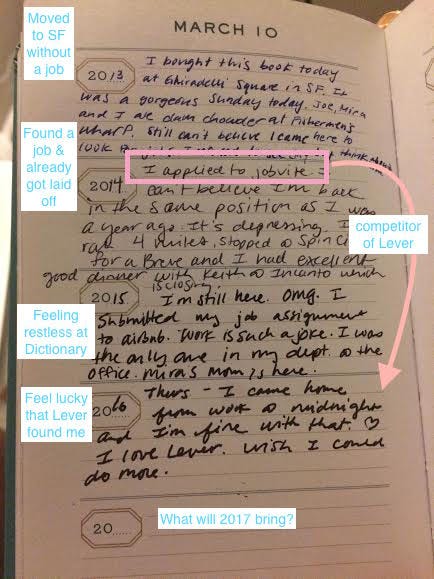 MARCH 10
Moved
to SF
without
a job
2013
I bought this book today
at Ghiradelli Square in SF. It
was a gorgeous Sunday today. Joe, Mira
and I ate clam chowder at Fishermen's
Wharf. Still can't believe I came here to
look but think about
Found a
job &
already
got laid
off
2014
I applied to jobvite.
Can't believe I'm back
in the same position as I was
a year ago. It's depressing. I
ran 4 miles, stopped @ Spin
for a Breve and I had excellent
good dinner with Keith @ Incanto which
is closing.
competitor
of Lever
Feeling
restless at
Dictionary
2015
I'm still here. OMG. I
submitted my job assignment
to airbnb. Work is such a joke. I was
the only one in my dept. @ the
office. Mira's Mom is here.
Feel lucky
that Lever
found me
2016
Thurs - I came home
from work @ midnight
and I'm fine with that. ♡
I love Lever. Wish I could
do more.
20
What will 2017 bring?